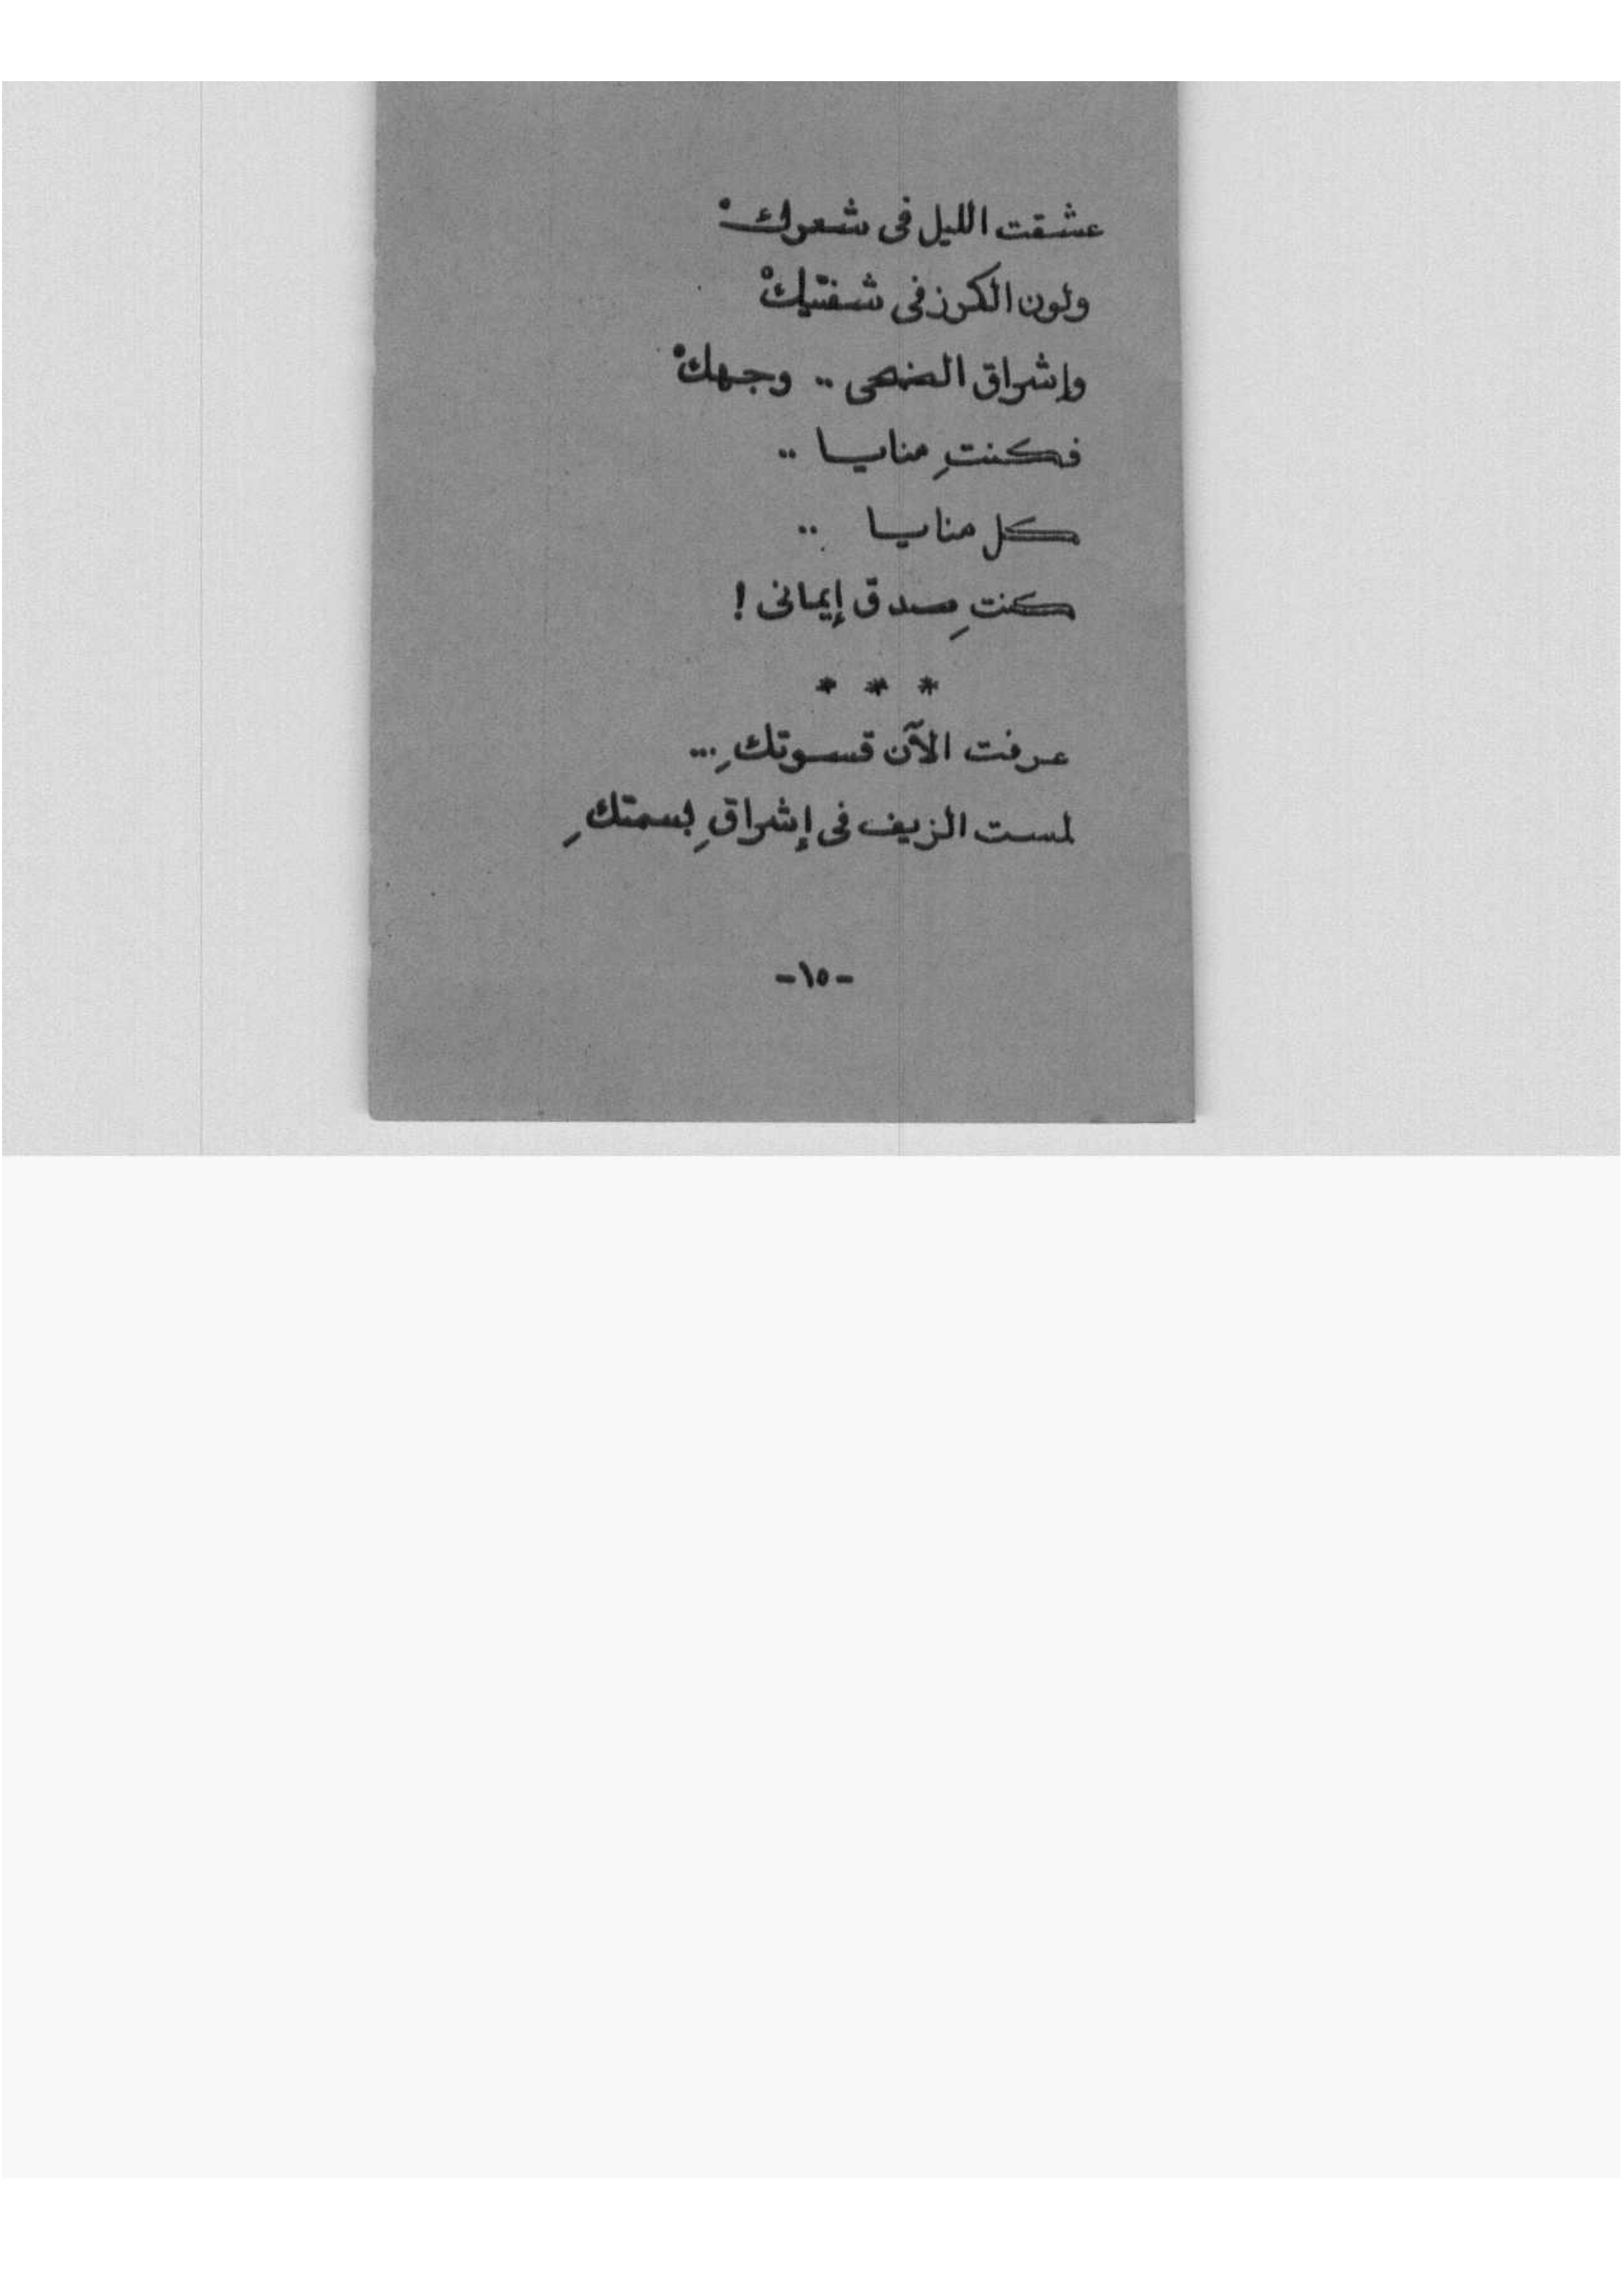 عشقت الليل فى شعرك ْ
ولون الكرز فى شفتيكْ
وإشراق الضحى .. وجهكْ
فكنتِ منايا ..
كل منايا ..
كنتِ صدق إيمانى !
* * *
عرفت الآن قسوتكِ ...
لمست الزيف فى إشراقِ بسمتكِ
-١٥-